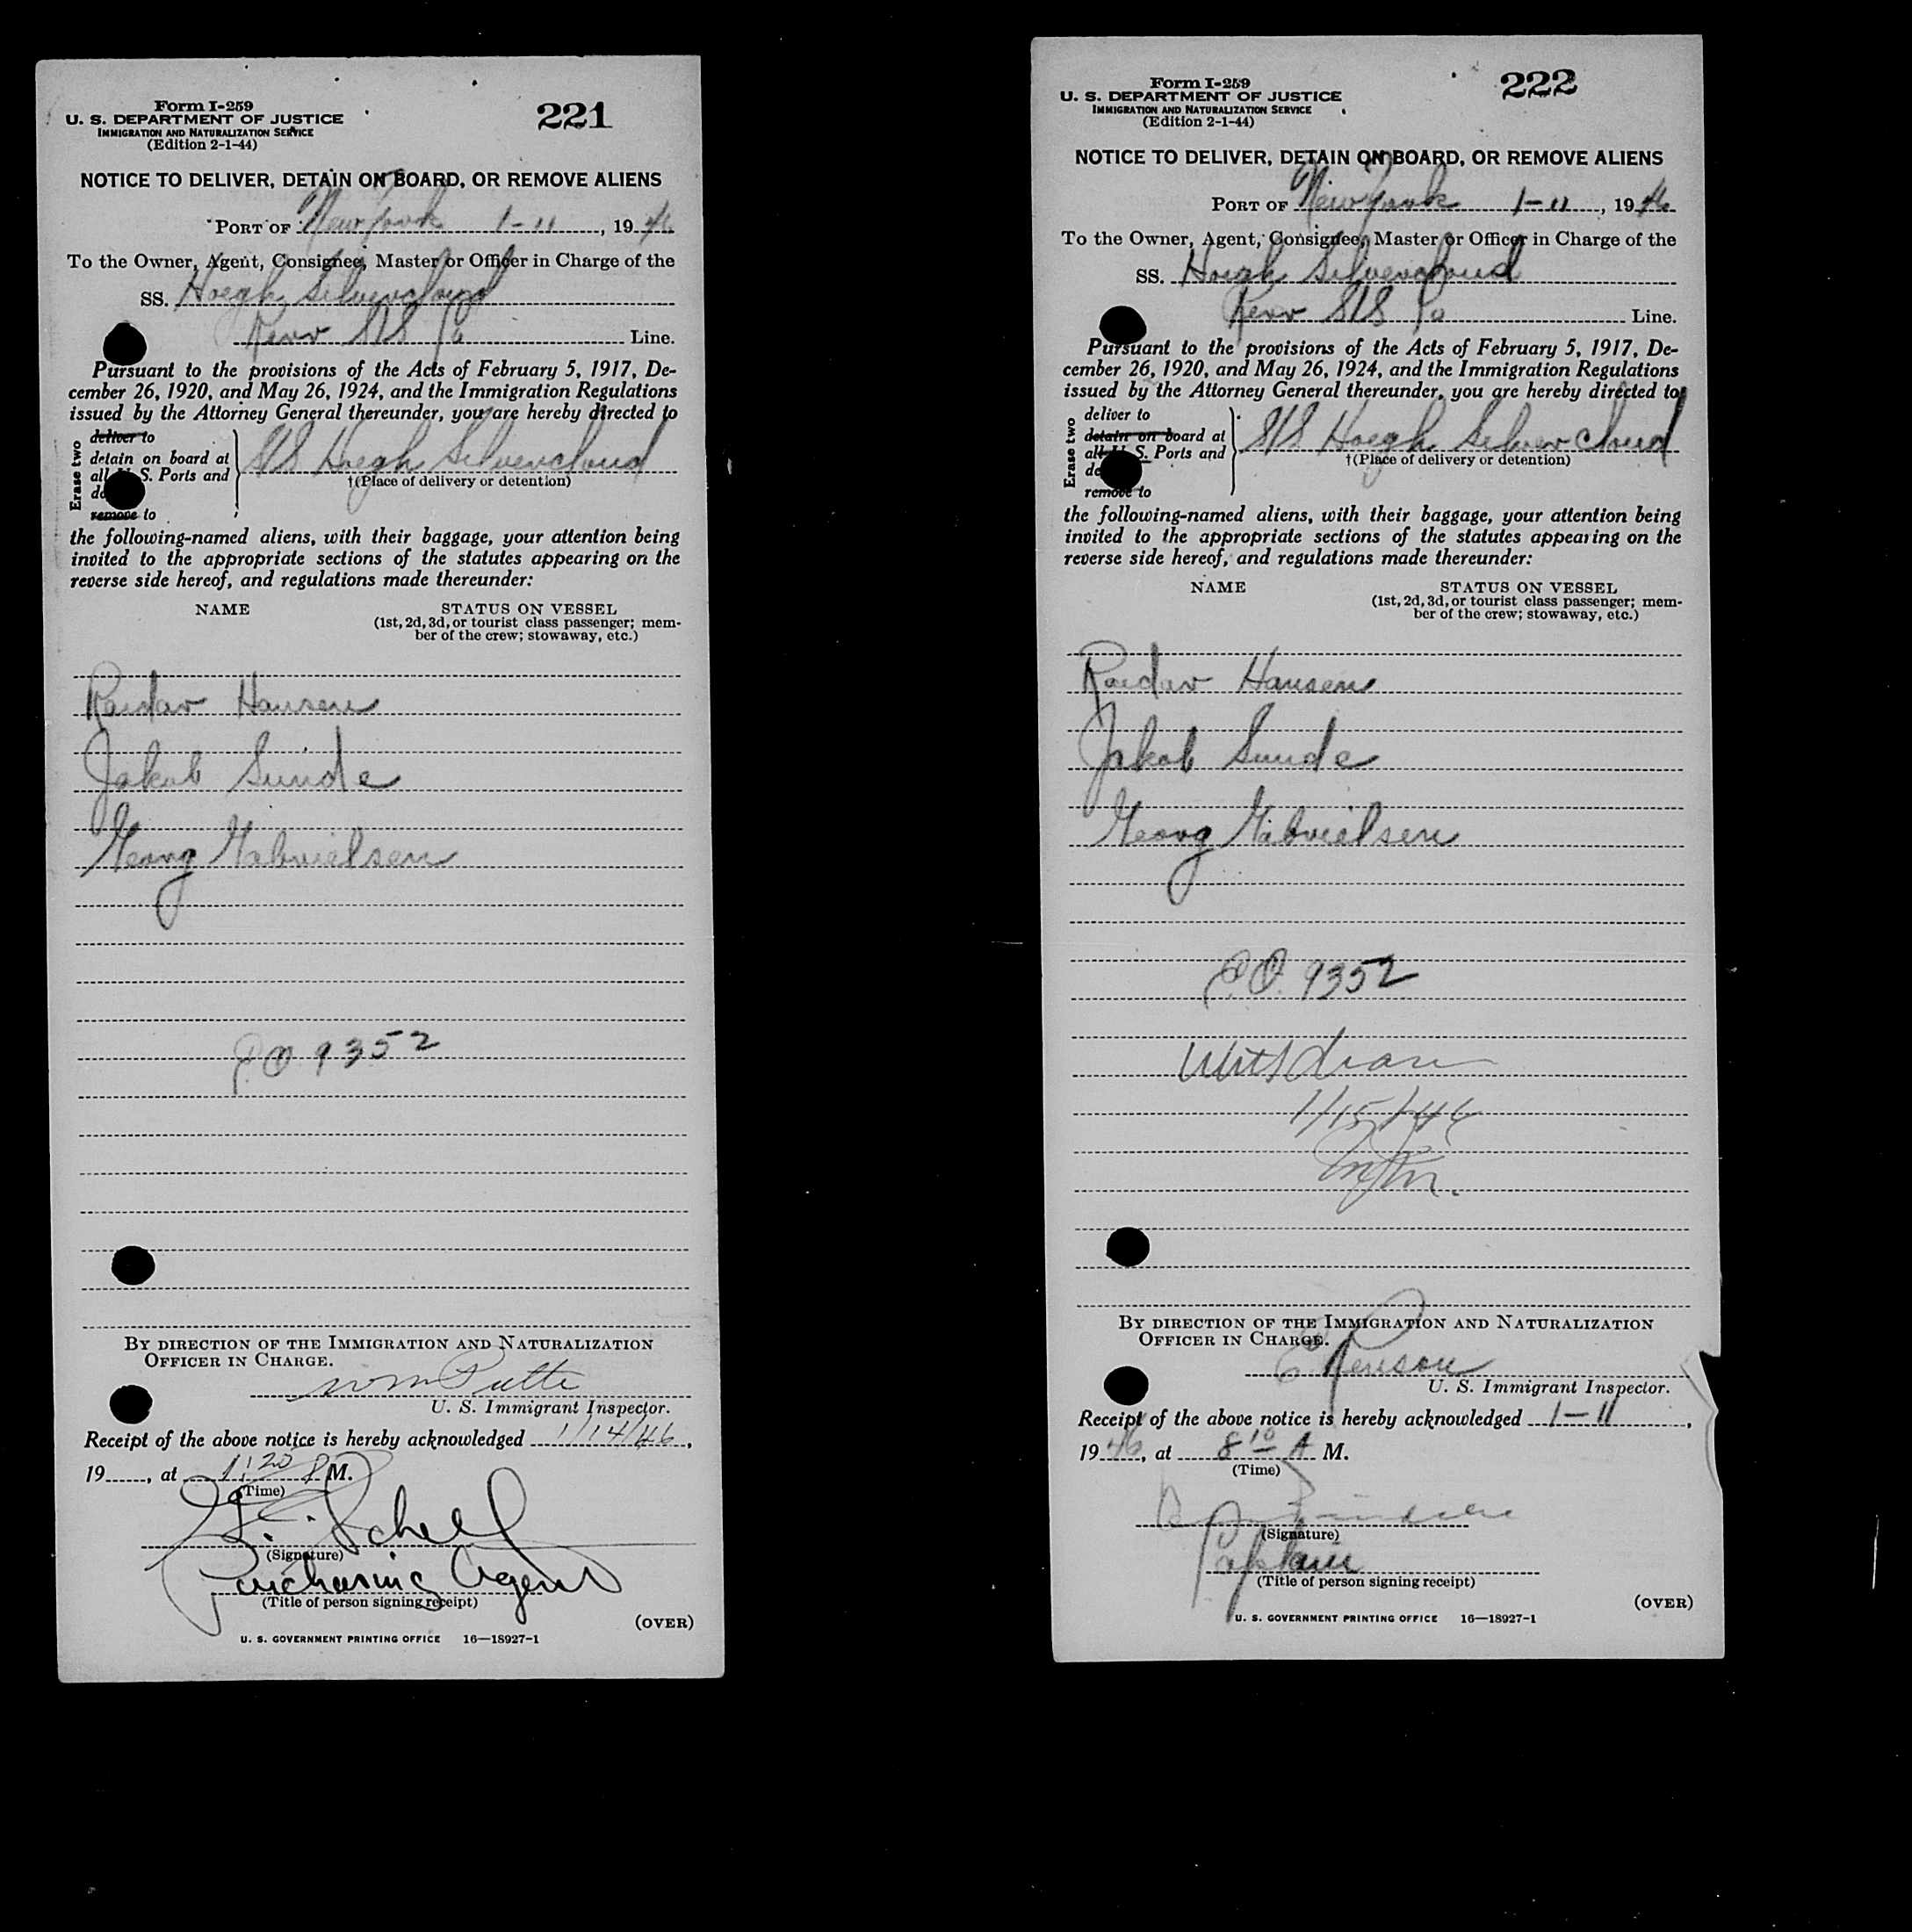 Form I-259
U. S. DEPARTMENT OF JUSTICE
IMMIGRATION AND NATURALIZATION SERVICE
(Edition 2-1-44)
221
NOTICE TO DELIVER, DETAIN ON BOARD, OR REMOVE ALIENS
PORT OF New York 1-11, 1946
To the Owner, Agent, Consignee, Master or Officer in Charge of the
SS. Hoegh Silvercloud
Kerr S/S Co Line.
Pursuant to the provisions of the Acts of February 5, 1917, De-
cember 26, 1920, and May 26, 1924, and the Immigration Regulations
issued by the Attorney General thereunder, you are hereby directed to
Erase two
deliver to
detain on board at
all U. S. Ports and
de
remove to
S/S Hoegh Silvercloud
†(Place of delivery or detention)
the following-named aliens, with their baggage, your attention being
invited to the appropriate sections of the statutes appearing on the
reverse side hereof, and regulations made thereunder:
NAME STATUS ON VESSEL
(1st, 2d, 3d, or tourist class passenger; mem-
ber of the crew; stowaway, etc.)
Reidar Hansen
Jakob Sunde
Georg Gabrielsen
P.O 9352
BY DIRECTION OF THE IMMIGRATION AND NATURALIZATION
OFFICER IN CHARGE.
Wm
U. S. Immigrant Inspector.
Receipt of the above notice is hereby acknowledged 1/14/46,
19, at 1:20 P M.
(Time)
Schell
(Signature)
Purchasing Agent
(Title of person signing receipt)
(OVER)
U. S. GOVERNMENT PRINTING OFFICE 16—18927-1
Form I-259
U. S. DEPARTMENT OF JUSTICE
IMMIGRATION AND NATURALIZATION SERVICE
(Edition 2-1-44)
222
NOTICE TO DELIVER, DETAIN ON BOARD, OR REMOVE ALIENS
PORT OF New York 1-11, 1946
To the Owner, Agent, Consignee, Master or Officer in Charge of the
SS. Hoegh Silvercloud
Kerr S/S Co Line.
Pursuant to the provisions of the Acts of February 5, 1917, De-
cember 26, 1920, and May 26, 1924, and the Immigration Regulations
issued by the Attorney General thereunder, you are hereby directed to
Erase two
deliver to
detain on board at
all U. S. Ports and
de
remove to
S/S Hoegh Silver cloud
†(Place of delivery or detention)
the following-named aliens, with their baggage, your attention being
invited to the appropriate sections of the statutes appearing on the
reverse side hereof, and regulations made thereunder:
NAME STATUS ON VESSEL
(1st, 2d, 3d, or tourist class passenger; mem-
ber of the crew; stowaway, etc.)
Reidar Hansen
Jakob Sunde
Georg Gabrielsen
P.O. 9352
1/15/46
BY DIRECTION OF THE IMMIGRATION AND NATURALIZATION
OFFICER IN CHARGE.
U. S. Immigrant Inspector.
Receipt of the above notice is hereby acknowledged 1-11,
1946, at 8 10 A M.
(Time)
(Signature)
Captain
(Title of person signing receipt)
(OVER)
U. S. GOVERNMENT PRINTING OFFICE 16—18927-1